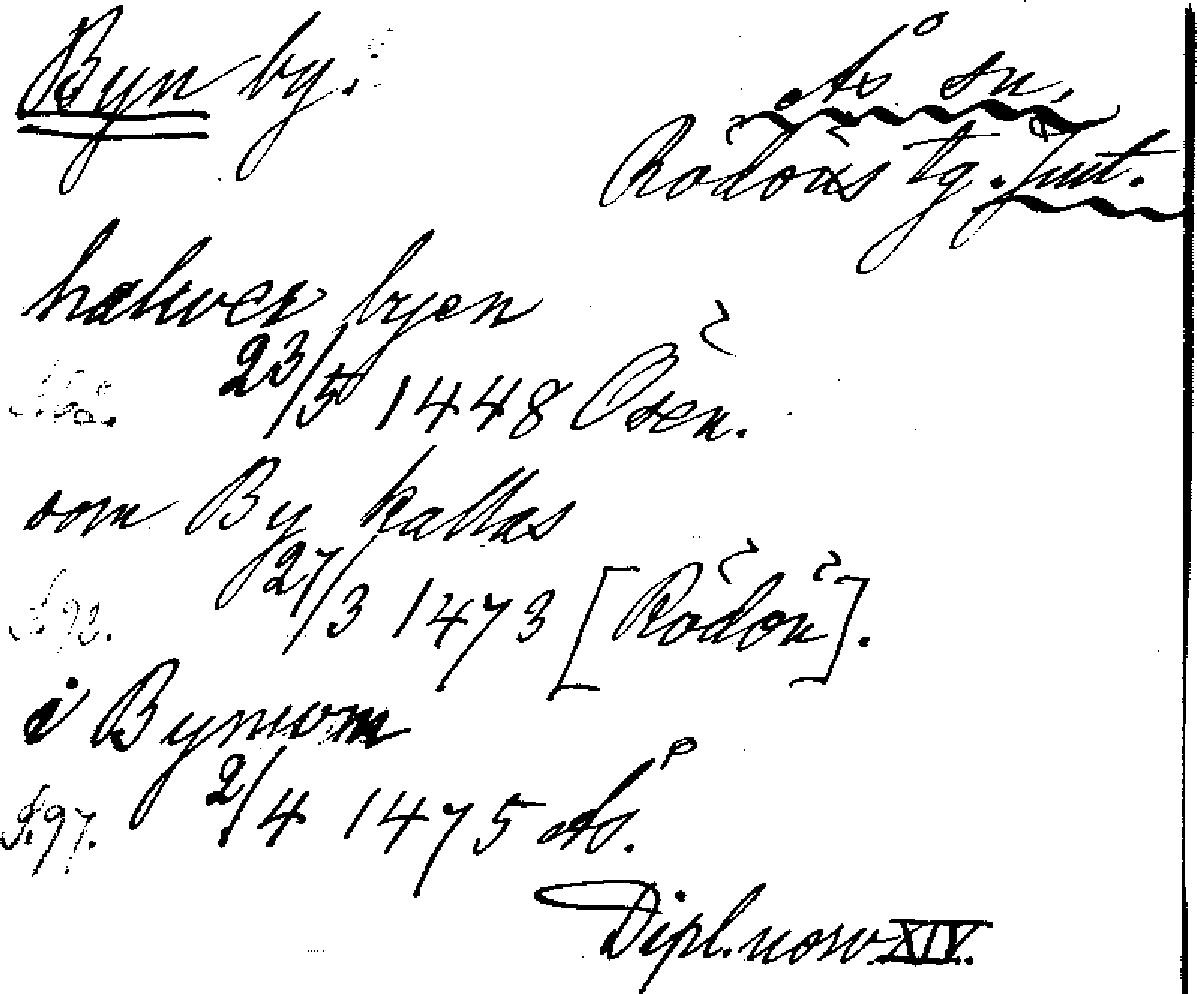 Byn by.
Ås sn,
Rödöns tg. Jmt.
halwer byen
23/5 1448 Ösen.
som By kallas
S.93. 27/3 1473 [Rödön].
i Bynwom
S.97. 2/4 1475 Ås.
Dipl. norv XIV.